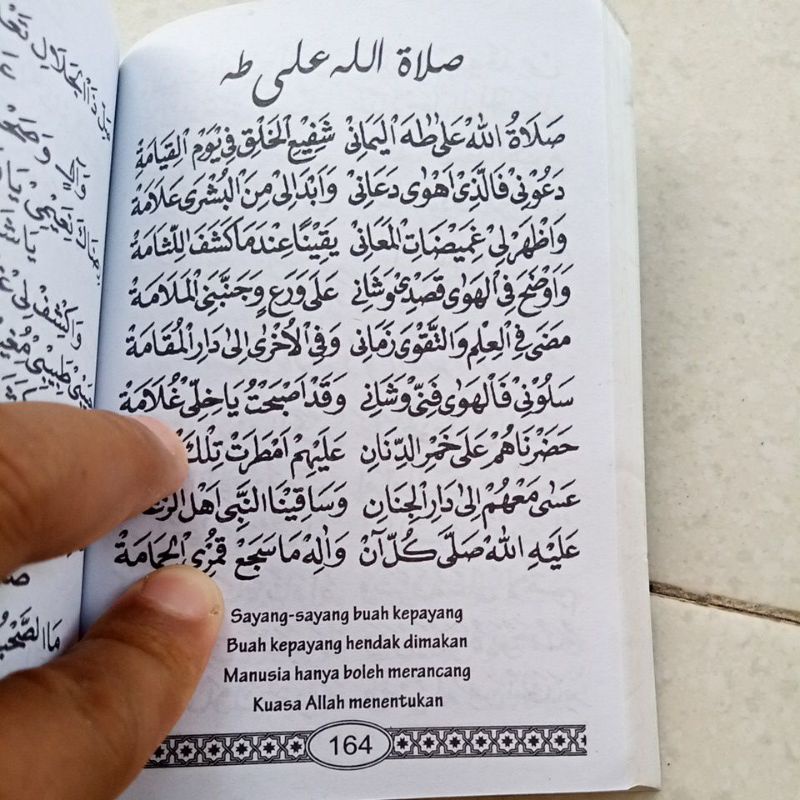 صلاة الله على طه
صَلَاةُ اللّٰهْ عَلٰى طٰهَ الْيَمَانِيْ شَفِيْعِ الْخَلْقِ فِيْ يَوْمِ الْقِيَامَةْ
دَعُوْنِيْ فَالَّذِيْ اَهْوٰى دَعَانِيْ وَاَبْدَالِيْ مِنَ الْبُشْرَى عَلَامَةْ
وَاَظْهَرْلِيْ غَمِيْضَاتِ الْمَعَانِيْ يَقِيْنًا عِنْدَ مَا كَشَفَ اللِّثَامَةْ
وَاَوْضَحَ فِى الْهَوٰى قَصْدِيْ وَشَانِيْ عَلٰى وَرَعٍ وَجَنَّبَنِى الْمَلَامَةْ
مَضٰى فِى الْعِلْمِ وَالتَّقْوٰى زَمَانِيْ وَفِى الْاُخْرٰى اِلٰى دَارِ الْمُقَامَةْ
سَلُوْنِيْ فَالْهَوٰى فَنِّيْ وَشَانِيْ وَقَدْ اَصْبَحْتُ يَا خِلِّيْ غُلَامَةْ
حَضَرْنَاهُمْ عَلٰى خَمْرِ الدِّنَانِ عَلَيْهِمْ اَمْطَرَتْ تِلْكَ
عَسٰى مَعْهُمْ اِلٰى دَارِ الْجِنَانِ وَسَاقِيْنَا النَّبِيْ اَهْلَ
عَلَيْهِ اللّٰهْ صَلَّى كُلَّ آنْ وَاٰلِهْ مَا سَجَعْ قُمْرِى الْحَمَامَةْ
Sayang-sayang buah kepayang
Buah kepayang hendak dimakan
Manusia hanya boleh merancang
Kuasa Allah menentukan
164